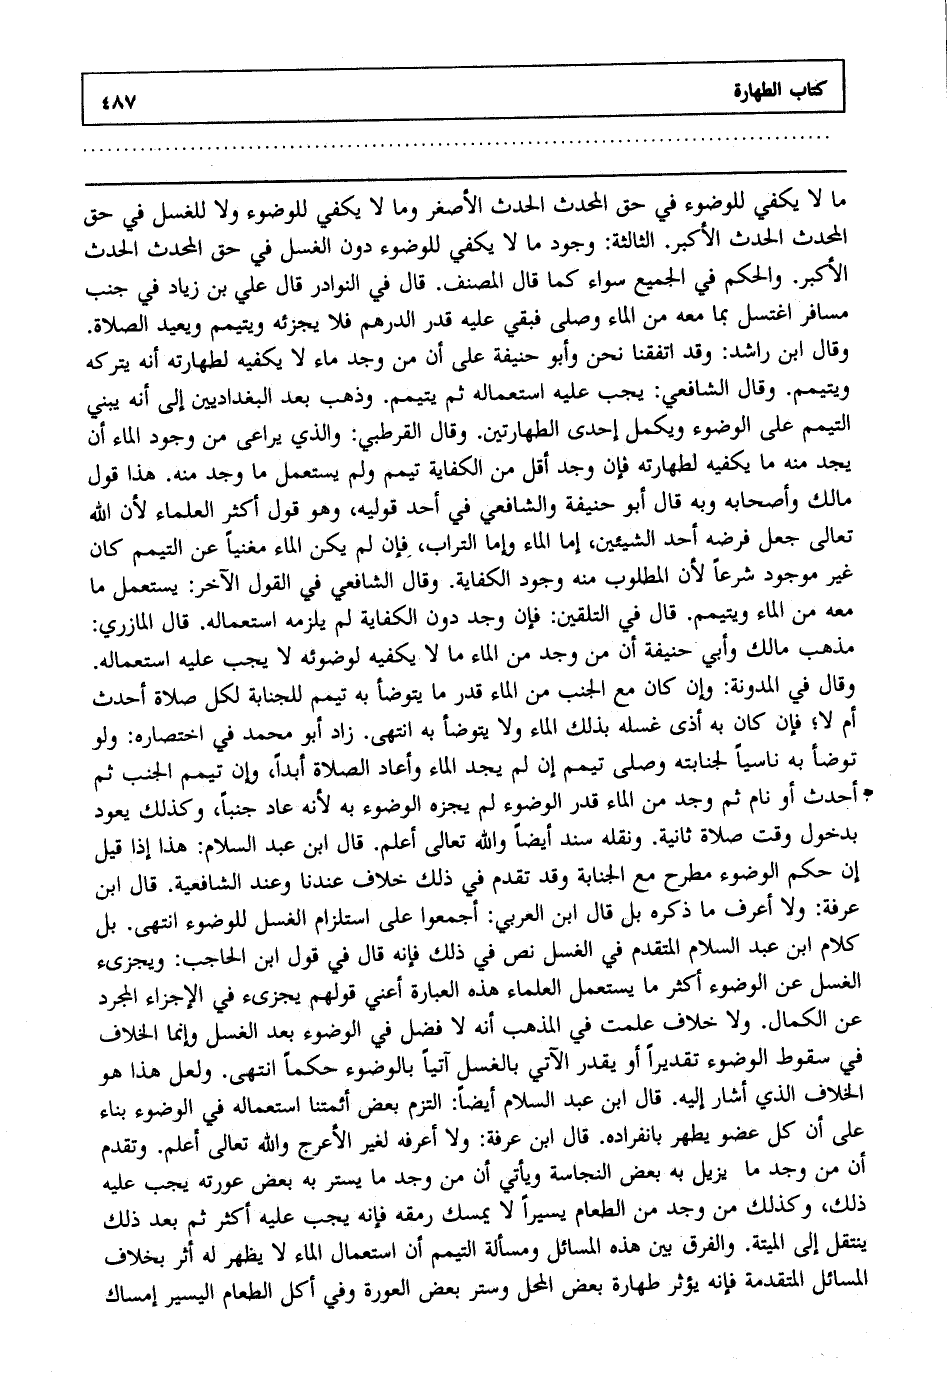 كتاب الطهارة
٤٨٧
ما لا يكفي للوضوء في حق المحدث الحدث الأصغر وما لا يكفي للوضوء ولا للغسل في حق
المحدث الحدث الأكبر. الثالثة: وجود ما لا يكفي للوضوء دون الغسل في حق المحدث الحدث
الأكبر. والحكم في الجميع سواء كما قال المصنف. قال في النوادر قال علي بن زياد في جنب
مسافر اغتسل بما معه من الماء وصلى فبقي عليه قدر الدرهم فلا يجزئه ويتيمم ويعيد الصلاة.
وقال ابن راشد: وقد اتفقنا نحن وأبو حنيفة على أن من وجد ماء لا يكفيه لطهارته أنه يتركه
ويتيمم. وقال الشافعي: يجب عليه استعماله ثم يتيمم. وذهب بعد البغداديين إلى أنه يبني
التيمم على الوضوء ويكمل إحدى الطهارتين. وقال القرطبي: والذي يراعى من وجود الماء أن
يجد منه ما يكفيه لطهارته فإن وجد أقل من الكفاية تيمم ولم يستعمل ما وجد منه. هذا قول
مالك وأصحابه وبه قال أبو حنيفة والشافعي في أحد قوليه، وهو قول أكثر العلماء لأن الله
تعالى جعل فرضه أحد الشيئين، إما الماء وإما التراب، فإن لم يكن الماء مغنياً عن التيمم كان
غير موجود شرعاً لأن المطلوب منه وجود الكفاية. وقال الشافعي في القول الآخر: يستعمل ما
معه من الماء ويتيمم. قال في التلقين: فإن وجد دون الكفاية لم يلزمه استعماله. قال المازري:
مذهب مالك وأبي حنيفة أن من وجد من الماء ما لا يكفيه لوضوئه لا يجب عليه استعماله.
وقال في المدونة: وإن كان مع الجنب من الماء قدر ما يتوضأ به تيمم للجنابة لكل صلاة أحدث
أم لا؛ فإن كان به أذى غسله بذلك الماء ولا يتوضأ به انتهى. زاد أبو محمد في اختصاره: ولو
توضأ به ناسياً لجنابته وصلى تيمم إن لم يجد الماء وأعاد الصلاة أبداً، وإن تيمم الجنب ثم
أحدث أو نام ثم وجد من الماء قدر الوضوء لم يجزه الوضوء به لأنه عاد جنباً، وكذلك يعود
بدخول وقت صلاة ثانية. ونقله سند أيضاً والله تعالى أعلم. قال ابن عبد السلام: هذا إذا قيل
إن حكم الوضوء مطرح مع الجنابة وقد تقدم في ذلك خلاف عندنا وعند الشافعية. قال ابن
عرفة: ولا أعرف ما ذكره بل قال ابن العربي: أجمعوا على استلزام الغسل للوضوء انتهى. بل
كلام ابن عبد السلام المتقدم في الغسل نص في ذلك فإنه قال في قول ابن الحاجب: ويجزىء
الغسل عن الوضوء أكثر ما يستعمل العلماء هذه العبارة أعني قولهم يجزىء في الإجزاء المجرد
عن الكمال. ولا خلاف علمت في المذهب أنه لا فضل في الوضوء بعد الغسل وإنما الخلاف
في سقوط الوضوء تقديراً أو يقدر الآتي بالغسل آتياً بالوضوء حكماً انتهى. ولعل هذا هو
الخلاف الذي أشار إليه. قال ابن عبد السلام أيضاً: التزم بعض أئمتنا استعماله في الوضوء بناء
على أن كل عضو يطهر بانفراده. قال ابن عرفة: ولا أعرفه لغير الأعرج والله تعالى أعلم. وتقدم
أن من وجد ما يزيل به بعض النجاسة ويأتي أن من وجد ما يستر به بعض عورته يجب عليه
ذلك، وكذلك من وجد من الطعام يسيراً لا يمسك رمقه فإنه يجب عليه أكثر ثم بعد ذلك
ينتقل إلى الميتة. والفرق بين هذه المسائل ومسألة التيمم أن استعمال الماء لا يظهر له أثر بخلاف
المسائل المتقدمة فإنه يؤثر طهارة بعض المحل وستر بعض العورة وفي أكل الطعام اليسير إمساك